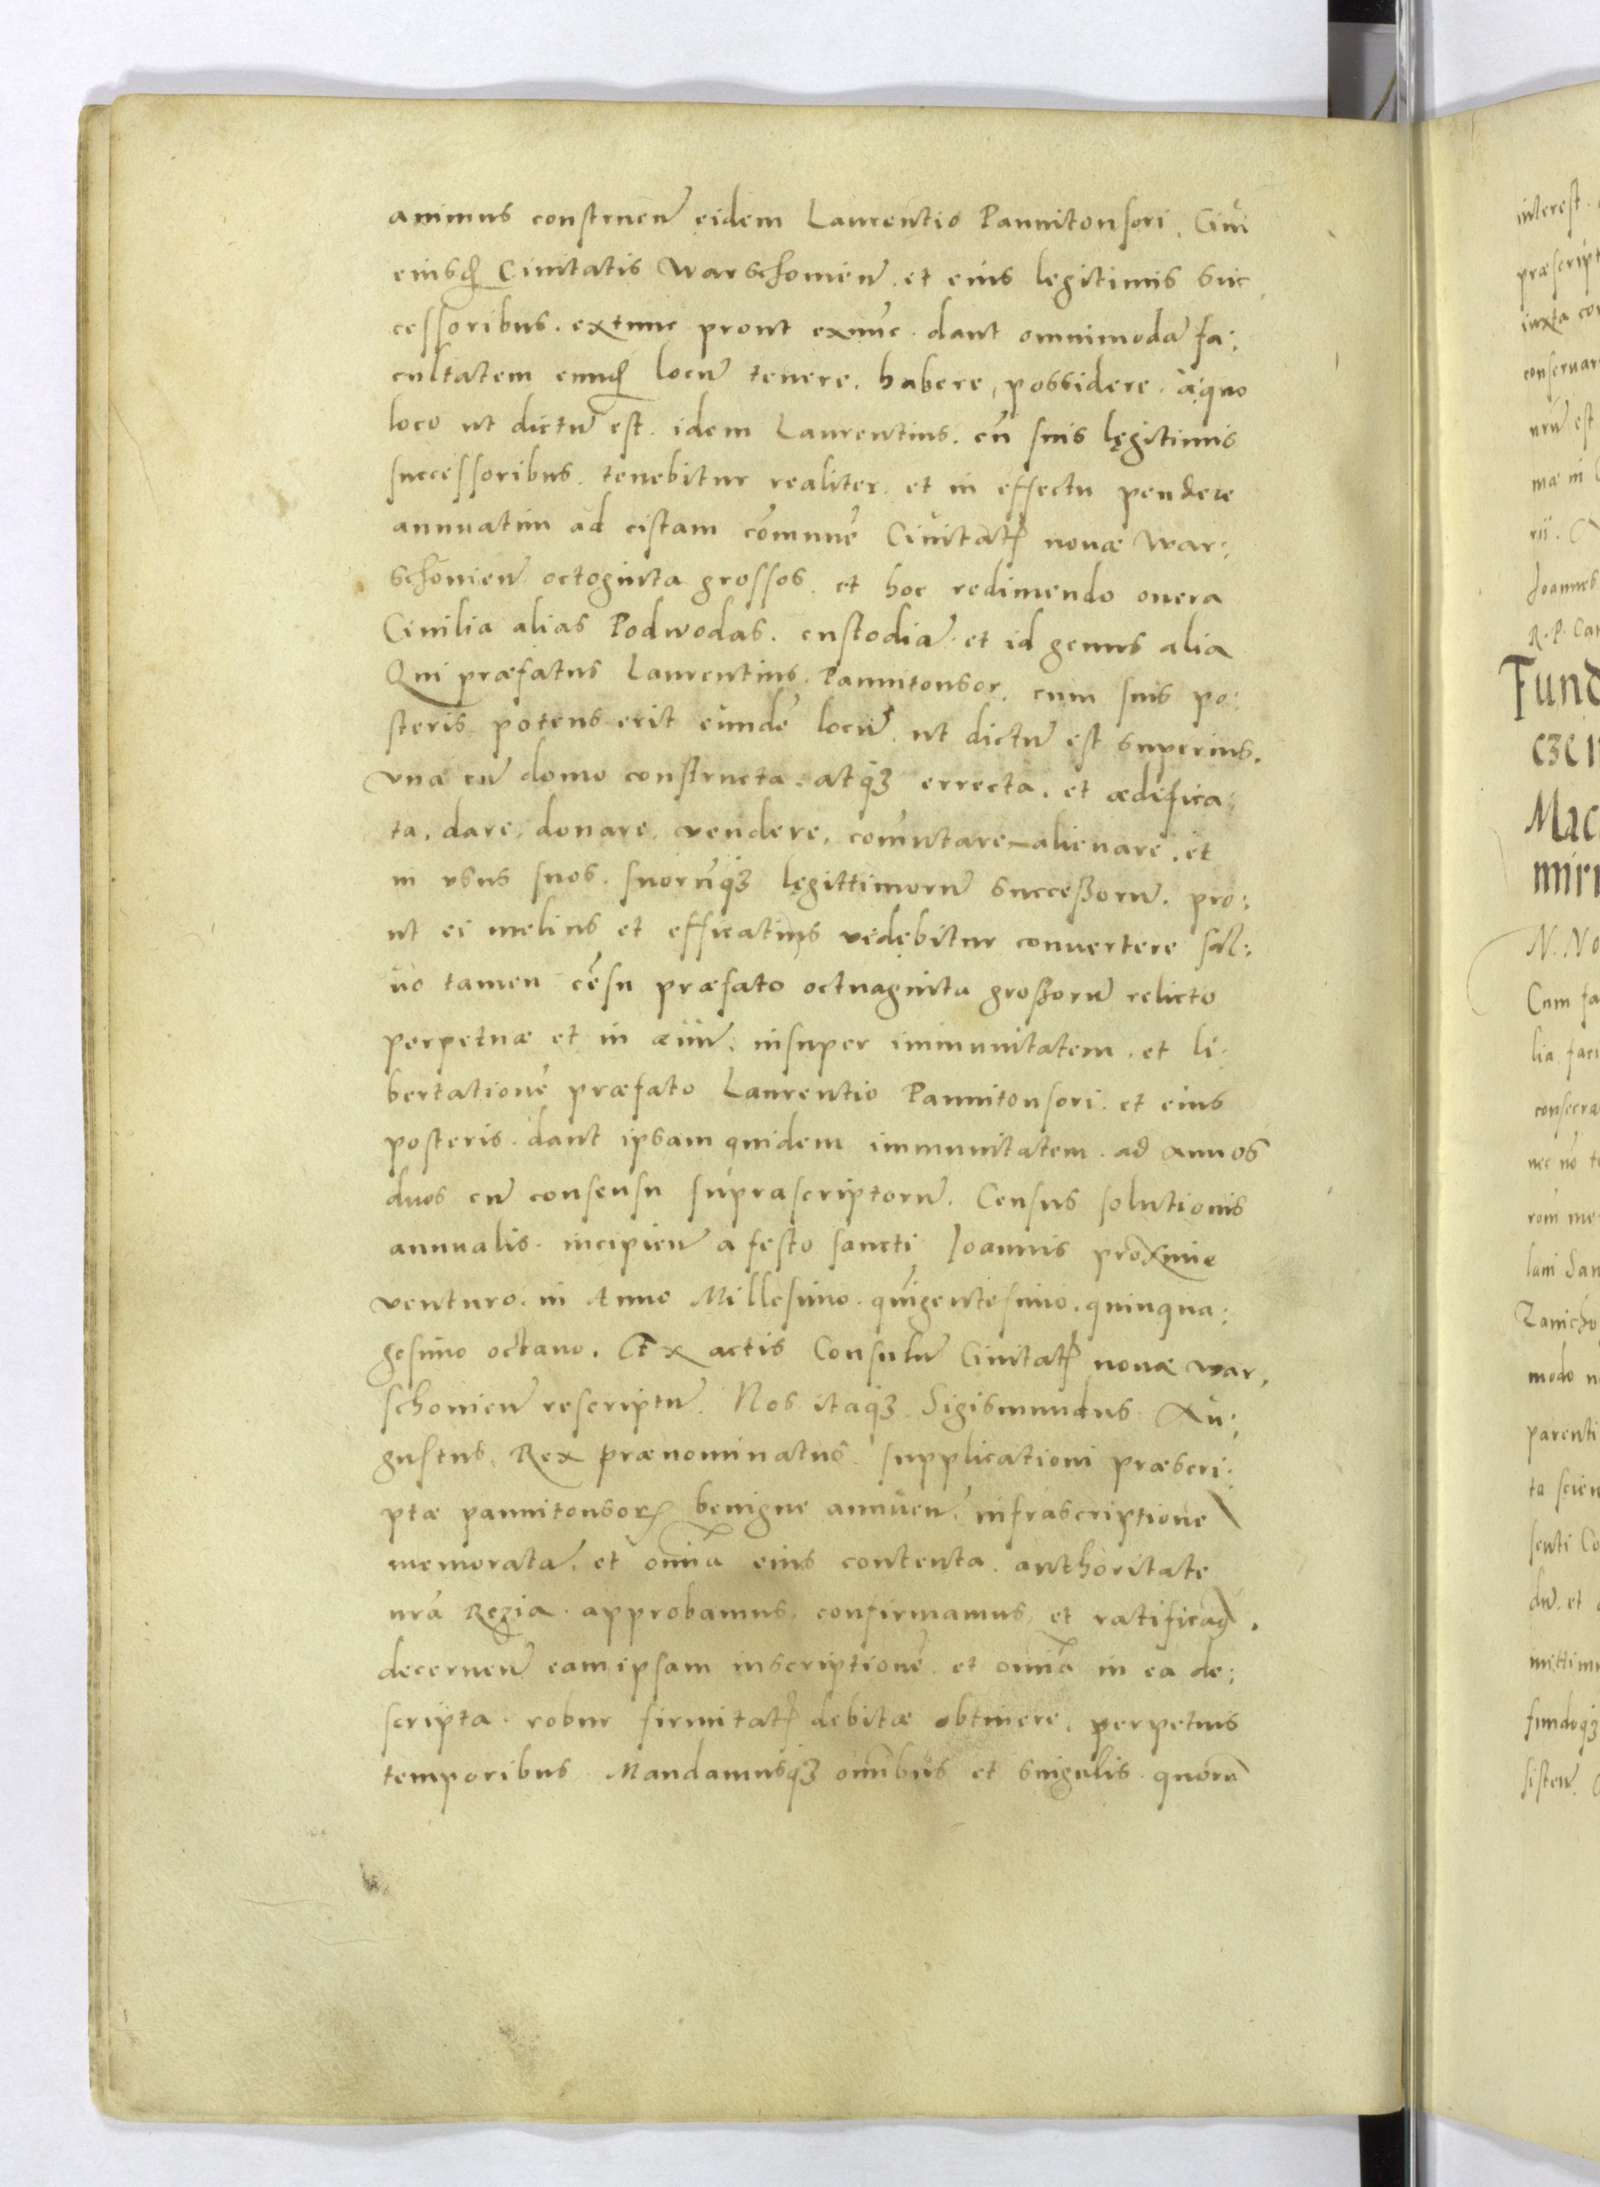 animus construen̄ eidem Laurentio Pannitonsori, Civi
eiusđ Civitatis Warschovien̄. et eius legitimis suc
cessoribus. extunc prout exnūc. dant omnimodā fa:
cultatem eundē locū tenere, habere, possidere. à quo
loco ut dictū est. idem Laurentius. cū suis lęgitimis
successoribus. tenebitur realiter. et in effectu pendere
annuatim ad cistam cōmunē Civitatꝭ novæ War:
schovien̄ octoginta grossos. et hoc redimendo onera
Civilia alias Podwodas. custodiā. et id genus alia
Qui præfatus Laurentius. Pannitonsor. cum suis po:
steris potens erit eundē locū, ut dictū est superius.
vnæ cū domo constructa. atqꝫ errecta. et ædifica:
ta, dare, donare, vendere, com̄utare alienare, et
in usus suos. suorūqꝫ lęgittimorū succeßorū. pro:
ut ei melius et efficatius vidębitur convertere sal:
vo tamen cēsu præfato octuaginta großorū relicto
perpetuæ et in ævū. insuper immunitatem, et li:
bertationē præfato Laurentio Pannitonsori. et eius
posteris. dant ipsam quidem immunitatem. ad annos
duos cū consensu suprascriptorū. Census solutionis
annualis. incipien̄ a festo sancti Joannis proxime
venturo. in Anno Millesimo. quīgentesimo. quinqua:
gesimo octavo. Ex actis Consulū Civitatꝭ novæ War,
schovien̄ rescriptū. Nos itaqꝫ Sigismundus Au:
gustus, Rex prænominatus supplicationi præscri:
ptæ pannitonsorꝭ benigne annuen̄, infrascriptione
memoratā. et om̄ia eius contenta. authoritate
nr̄a Regia. approbamus, confirmamus, et ratificaꝰ.
decernen̄ eam ipsam inscriptionē. et om̄ia in ea de:
scripta. robur firmitatꝭ debitæ obtinere, perpetuis
temporibus Mandamusqꝫ om̄ibus et singulis. quorū
interest.
præscript
iuxta con
conservar
nrū est
mæ in
rii.
Joannes
R. P. Can
Fund
czci
Mac
miri
N. No
Cum fa
lia faci
consecra
nec nō te
rom me
lani San
Zanicho
modo n
parenti
ta scien
senti Co
dū. et
mittim
fundoqꝫ
sisten̄.